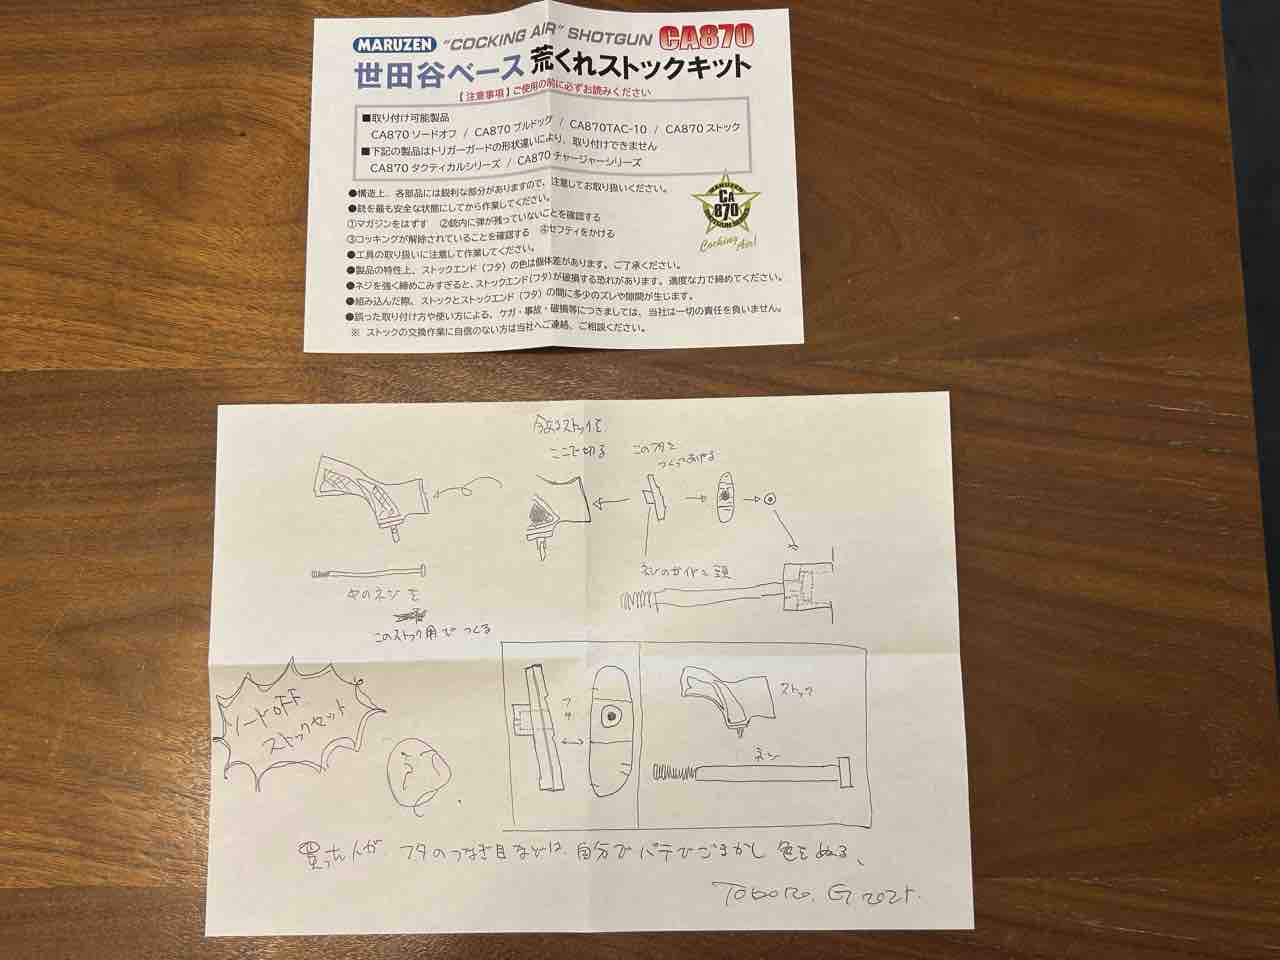 MARUZEN "COCKING AIR" SHOTGUN CA870
世田谷ベース 荒くれストックキット
【注意事項】ご使用の前に必ずお読みください
■取り付け可能製品
CA870 ソードオフ / CA870 ブルドッグ / CA870TAC-10 / CA870 ストック
■下記の製品はトリガーガードの形状違いにより、取り付けできません
CA870 タクティカルシリーズ / CA870 チャージャーシリーズ
●構造上、各部品には鋭利な部分がありますので、注意してお取り扱いください。
●銃を最も安全な状態にしてから作業してください。
①マガジンをはずす ②銃内に弾が残っていないことを確認する
③コッキングが解除されていることを確認する ④セフティをかける
●工具の取り扱いに注意して作業してください。
●製品の特性上、ストックエンド(フタ)の色は個体差があります。ご了承ください。
●ネジを強く締めこみすぎると、ストックエンド(フタ)が破損する恐れがあります。適度な力で締めてください。
●組み込んだ際、ストックとストックエンド(フタ)の間に多少のズレや隙間が生じます。
●誤った取り付け方や使い方による、ケガ・事故・破損等につきましては、当社は一切の責任を負いません。
※ ストックの交換作業に自信のない方は当社へご連絡、ご相談ください。
MARUZEN
CA
870
SHOTGUN SERIES
Cocking Air!
今あるストックを
ここで切る
このフタを
つくってあげる
ネジのガイドと頭
中のネジを
このストック用でつくる
ソードOFF
ストックセット
フタ
ストック
ネジ
買った人が フタのつなぎ目などは、自分でパテでごまかし 色をぬる、
Toboro. G 2021.